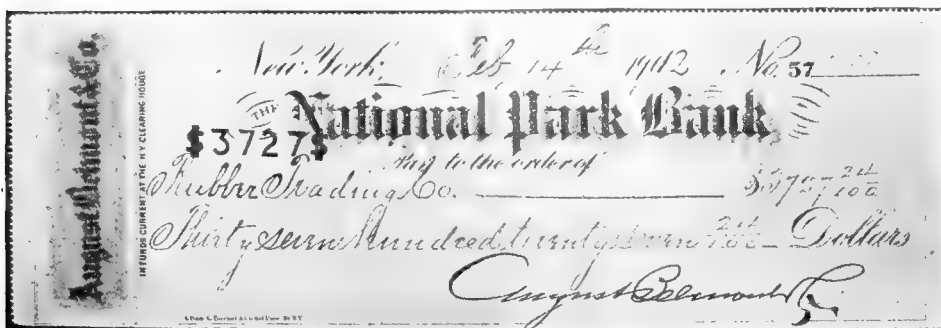 August Belmont & Co.
IN FUNDS CURRENT AT THE N.Y. CLEARING HOUSE
New York, Feb 14th 1912 No. 57
THE
National Park Bank
$3727$
Pay to the order of
Rubber Trading Co. 24/100
Thirty seven hundred twenty seven 24/100 Dollars
August Belmont & Co.